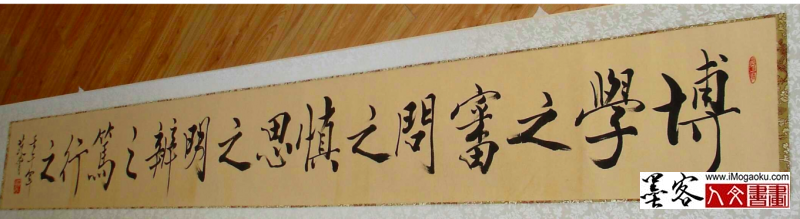 博學之審問之慎思之明辨之篤行之
www.iMogaoku.com
墨客 人文書畫